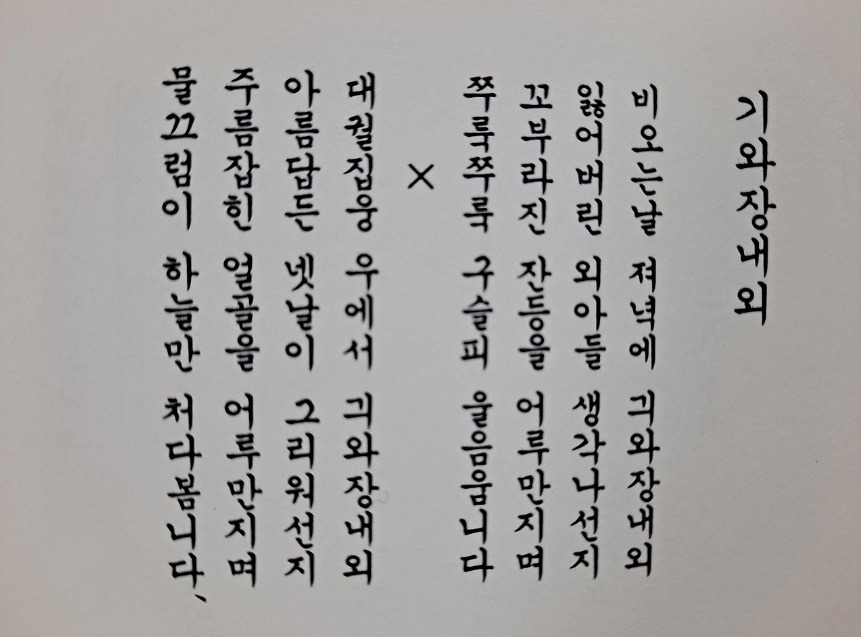 기와장내외
비오는날 져녁에 긔와장내외
잃어버린 외아들 생각나선지
꼬부라진 잔등을 어루만지며
쭈룩쭈룩 구슬피 울음웁니다
×
대궐집웅 우에서 긔와장내외
아름답든 녯날이 그리워선지
주름잡힌 얼골을 어루만지며
물끄럼이 하늘만 처다봅니다、